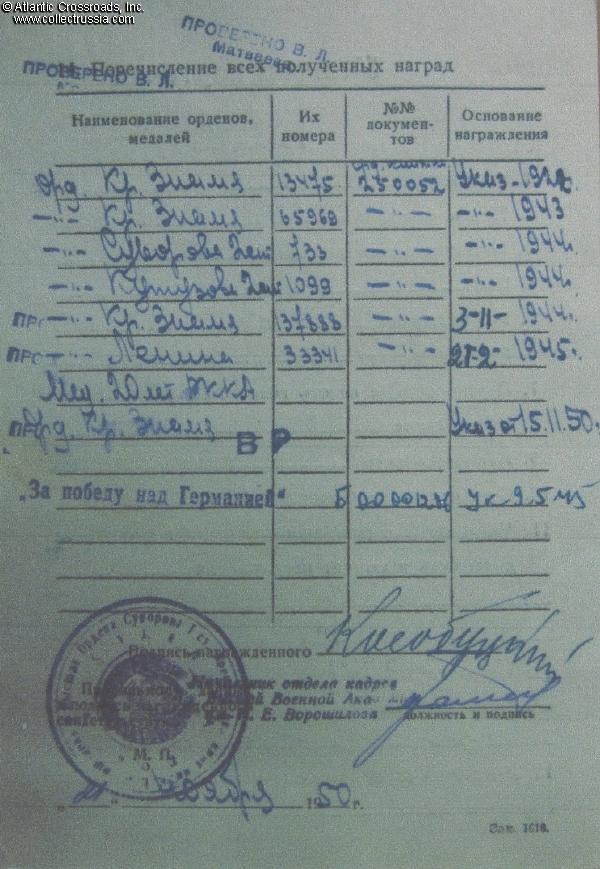 © Atlantic Crossroads, Inc.
www.collectrussia.com
ПРОВЕРЕНО В. Л.
Матвеев
ПРОВЕРЕНО В. Л.
Перечисление всех полученных наград
Наименование орденов, медалей Их номера №№ документов Основание награждения
Орд. Кр. Знамя 13475 250052 Указ
—"— Кр. Знамя 65969 —"— 1943
—"— Суворова 2 ст 733 —"— —"— 1944г.
—"— Кутузова 2 ст 1099 —"— —"— 1944г.
—"— Кр. Знамя 137888 —"— 3-11- 1944г.
—"— Ленина 33341 —"— 21-2- 1945г.
Мед. 20 лет РККА
Орд. Кр. Знамя Указ от 15.11.50г.
ВР
„За победу над Германией“ Ук 9.5.45
Подпись награжденного
Начальник отдела кадров
Военной
К. Е. Ворошилова
должность и подпись
М. П.
„ “ ноября 1950 г.
Зак. 1616.